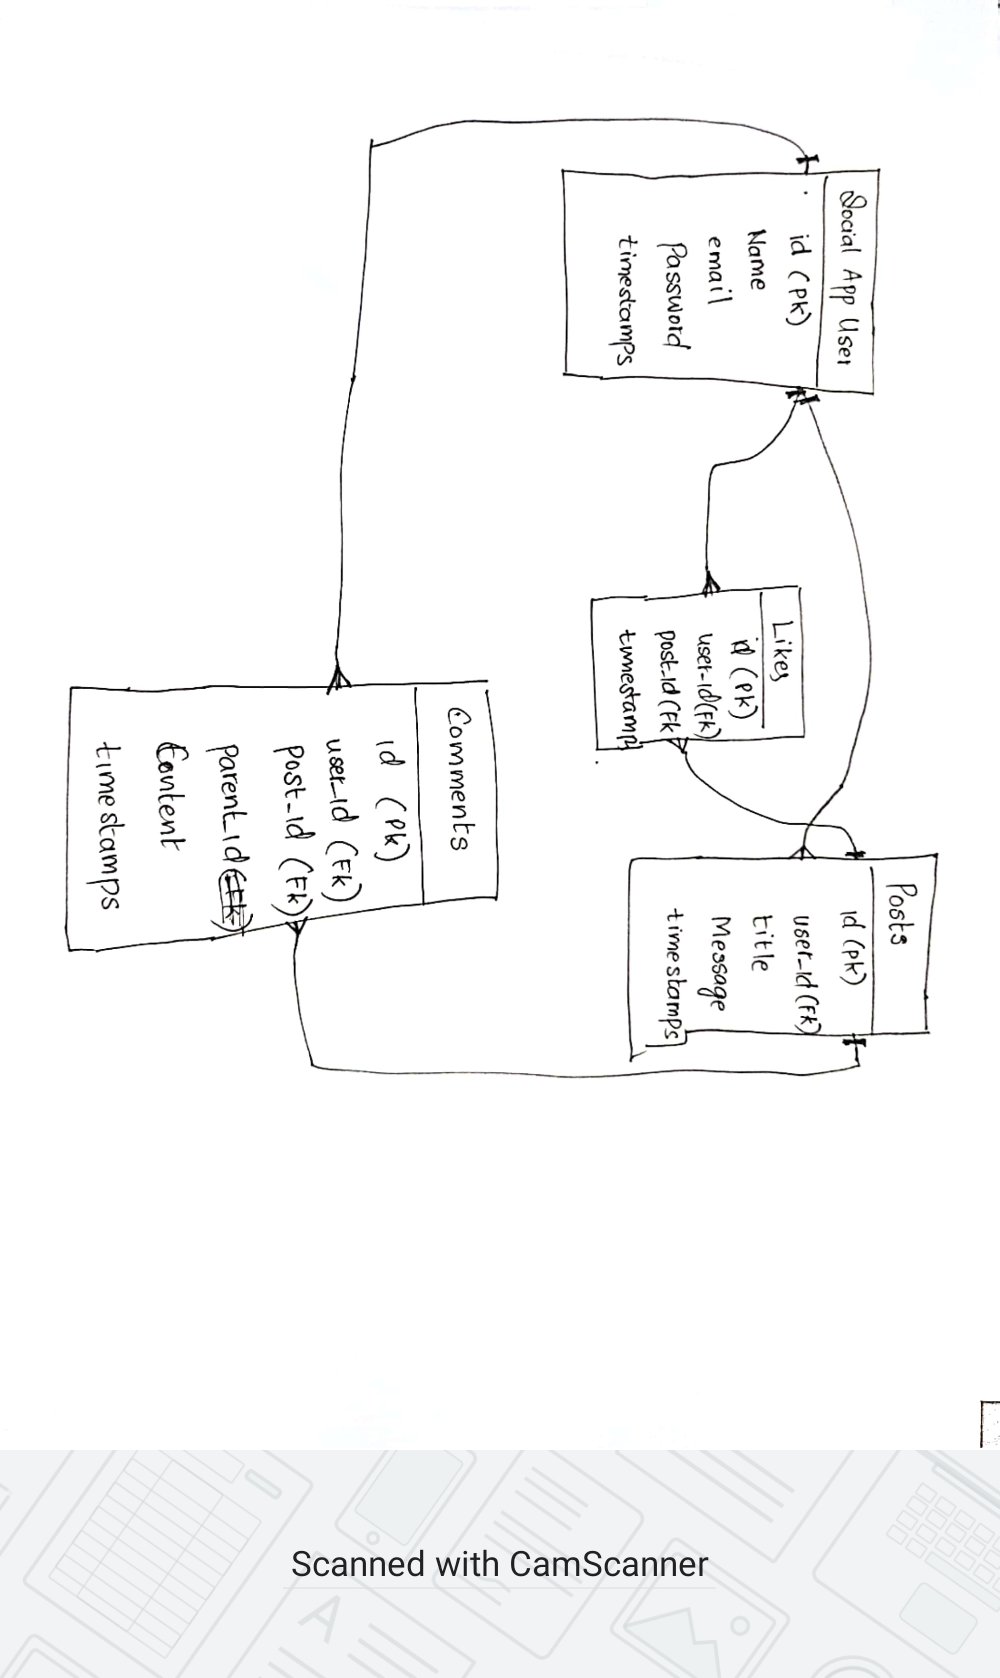 Social App User
id (PK)
Name
email
Password
timestamps
Likes
id (PK)
user-id (FK)
post_id (FK
timestamp
Posts
id (PK)
user_id (FK)
title
Message
timestamps
Comments
id (PK)
user_id (FK)
post_id (FK)
parent_id
Content
timestamps
Scanned with CamScanner